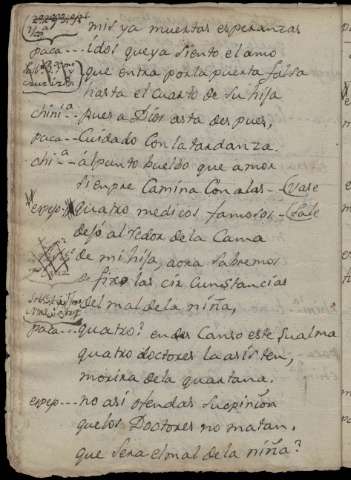 mis ya muertas esperanzas
paca--- idos que ya siento el amo
que entra por la puerta falsa
hasta el cuarto de su hija
chini^a pues a Dios asta des pues,
paca-- Cuidado Con la tardanza.
chi--^a al punto buelbo que amor
siempre Camina Con alas-- Vase
espep- quatro medicos famosos- Sale
dejo al rededor de la Cama
de mi hija, aora sabremos
de fixo las cir Cunstancias
del mal de la niña,
paca--- quatro? en des Canso este su alma
quatro doctores la asisten,
morira de la quartana.
espep--- no asi ofendas su opinion
que los Doctores no matan,
que sera el mal de la niña?